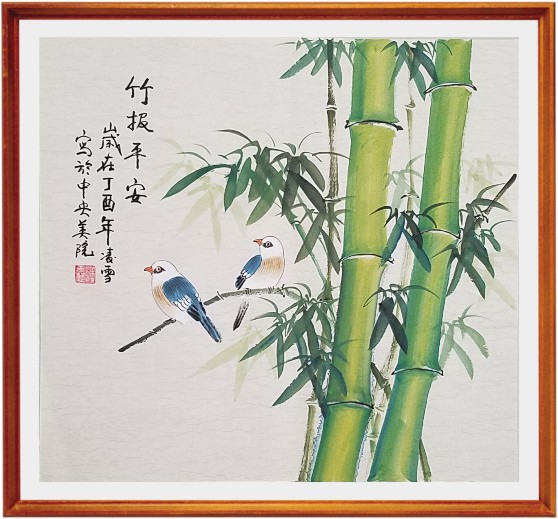 竹报平安
歲在丁酉年凌雪
寫於中央美院